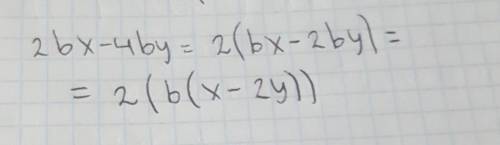 2bx-4by= 2(bx-2by)=
= 2(b(x-2y))